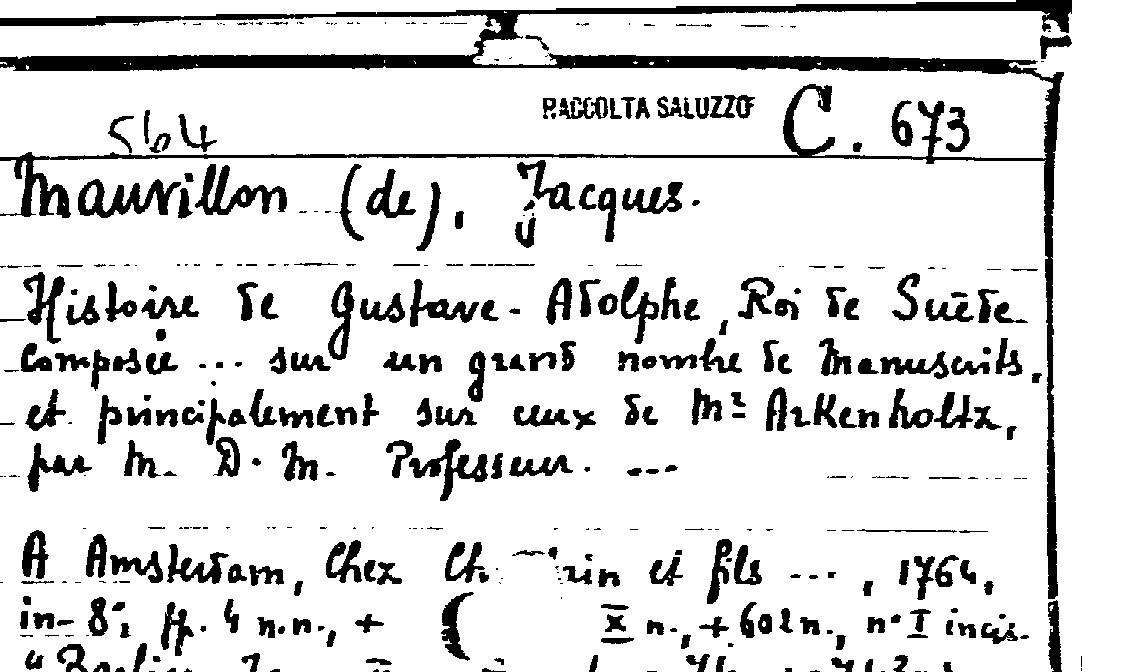 RACCOLTA SALUZZO C. 673
564
Mauvillon (de), Jacques.
Histoire de Gustave-Adolphe, Roi de Suède
composée ... sur un grand nombre de Manuscrits,
et principalement sur ceux de Mr Arkenholtz,
par M. D. M. Professeur. ...
A Amsterdam, Chez Ch. et fils ... , 1764,
in-8°, ff. 4 n.n., + X n., + 602 n., n° I incis.